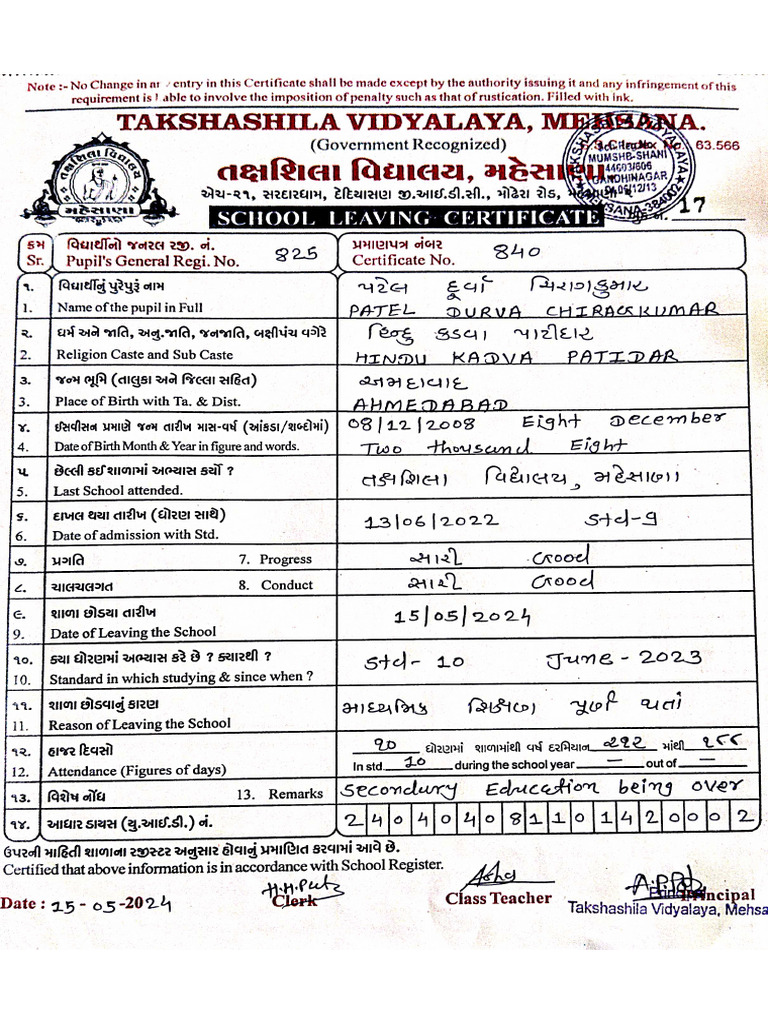 Note :- No Change in any entry in this Certificate shall be made except by the authority issuing it and any infringement of this
requirement is liable to involve the imposition of penalty such as that of rustication. Filled with ink.
TAKSHASHILA VIDYALAYA, MEHSANA.
(Government Recognized)
63.566
તક્ષશિલા વિદ્યાલય, મહેસાણા
એચ-૨૧, સરદારધામ, દેદિયાસણ જી.આઈ.ડી.સી., મોઢેરા રોડ,
તક્ષશિલા વિદ્યાલય
મહેસાણા
TAKSHASHILA VIDYALAYA
MUMSHB-SHANI
44603/606
GANDHINAGAR
06/12/13
MEHSANA-384002
SCHOOL LEAVING CERTIFICATE
17
ક્રમ વિદ્યાર્થીનો જનરલ રજી. નં. 825 પ્રમાણપત્ર નંબર 840
Sr. Pupil's General Regi. No. Certificate No.
૧. વિદ્યાર્થીનું પુરેપુરૂં નામ પટેલ દૂર્વા ચિરાગકુમાર
1. Name of the pupil in Full PATEL DURVA CHIRAGKUMAR
૨. ધર્મ અને જાતિ, અનુ.જાતિ, જનજાતિ, બક્ષીપંચ વગેરે હિન્દુ કડવા પાટીદાર
2. Religion Caste and Sub Caste HINDU KADVA PATIDAR
૩. જન્મ ભૂમિ (તાલુકા અને જિલ્લા સહિત) અમદાવાદ
3. Place of Birth with Ta. & Dist. AHMEDABAD
૪. ઈસવીસન પ્રમાણે જન્મ તારીખ માસ-વર્ષ (આંકડા/શબ્દોમાં) 08/12/2008 Eight December
4. Date of Birth Month & Year in figure and words. Two thousand Eight
૫. છેલ્લી કઈ શાળામાં અભ્યાસ કર્યો ? તક્ષશિલા વિદ્યાલય, મહેસાણા
5. Last School attended.
૬. દાખલ થયા તારીખ (ધોરણ સાથે) 13/06/2022 Std-9
6. Date of admission with Std.
૭. પ્રગતિ 7. Progress સારી Good
૮. ચાલચલગત 8. Conduct સારી Good
૯. શાળા છોડયા તારીખ 15/05/2024
9. Date of Leaving the School
૧૦. ક્યા ધોરણમાં અભ્યાસ કરે છે ? ક્યારથી ? Std- 10 June-2023
10. Standard in which studying & since when ?
૧૧. શાળા છોડવાનું કારણ માધ્યમિક શિક્ષણ પૂર્ણ થતાં
11. Reason of Leaving the School
૧૨. હાજર દિવસો ૧૦ ધોરણમાં શાળામાંથી વર્ષ દરમિયાન ૨૧૨ માંથી ૧૮૮
12. Attendance (Figures of days) In std 10 during the school year — out of —
૧૩. વિશેષ નોંધ 13. Remarks Secondury Education being over
૧૪. આધાર ડાયસ (યુ.આઈ.ડી.) નં. 2 4 0 4 0 4 0 8 1 1 0 1 4 2 0 0 0 2
ઉપરની માહિતી શાળાના રજીસ્ટર અનુસાર હોવાનું પ્રમાણિત કરવામાં આવે છે.
Certified that above information is in accordance with School Register.
Date : 15-05-2024 Clerk Class Teacher Principal
Principal
Takshashila Vidyalaya, Mehsa